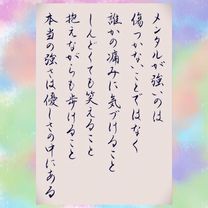 メンタルが強いのは
傷つかないことではなく
誰かの痛みに気づけること
しんどくても笑えること
抱えながらも歩けること
本当の強さは優しさの中にある